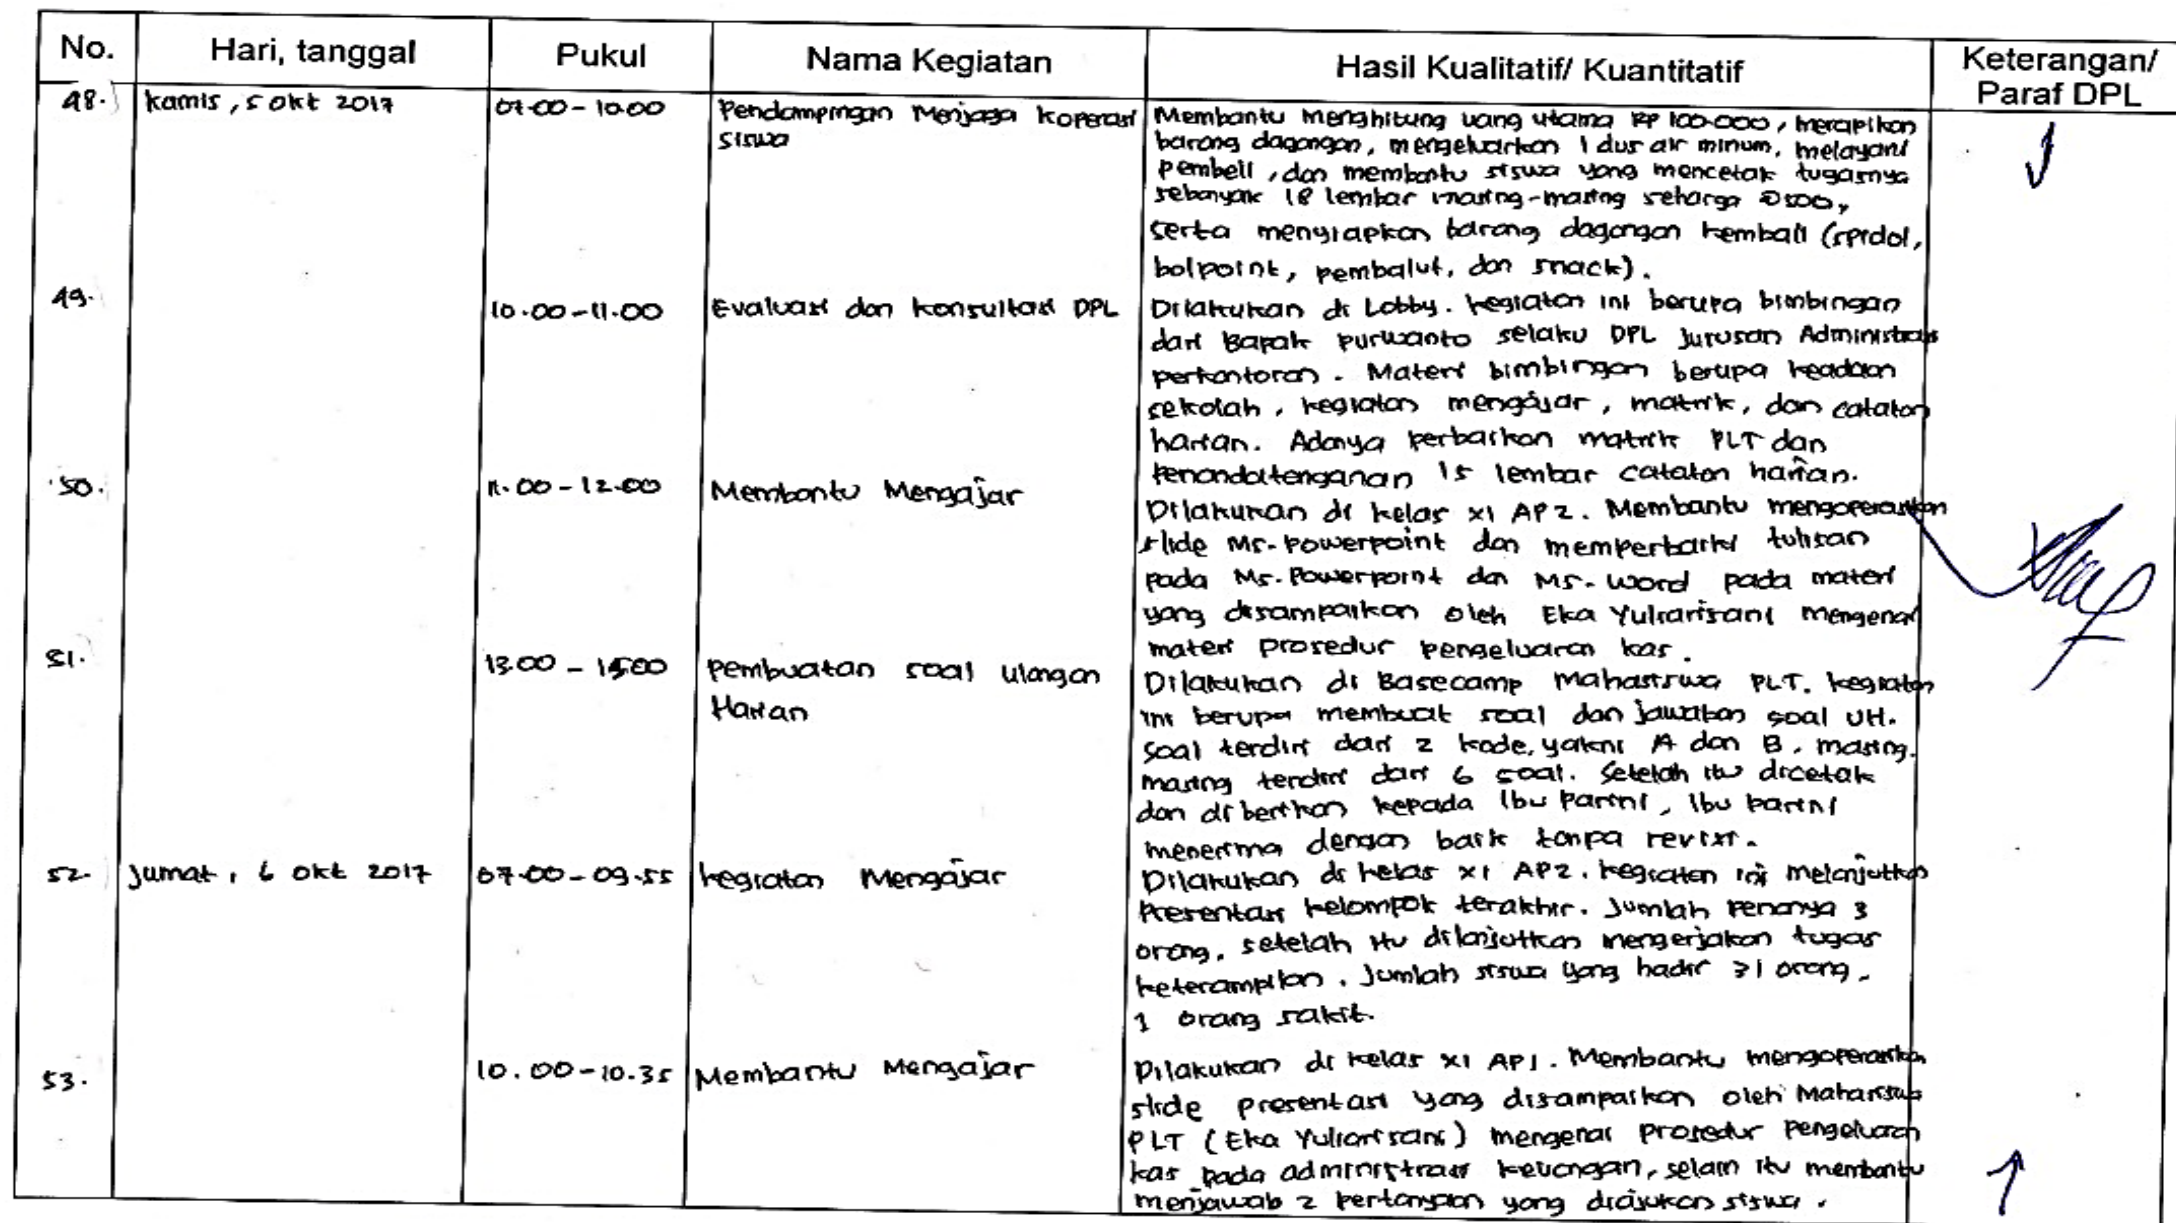 No. Hari, tanggal Pukul Nama Kegiatan Hasil Kualitatif/ Kuantitatif Keterangan/ Paraf DPL
48. Kamis, 5 Okt 2017 07.00 - 10.00 Pendampingan Menjaga Koperasi siswa
Membantu menghitung uang utama Rp 100.000, merapikan
barang dagangan, mengeluarkan 1 dus air minum, melayani
pembeli, dan membantu siswa yang mencetak tugasnya
sebanyak 18 lembar masing-masing seharga
serta menyiapkan barang dagangan kembali (spidol,
bolpoint, pembalut, dan snack).
49. 10.00 - 11.00 Evaluasi dan konsultasi DPL
Dilakukan di Lobby. Kegiatan ini berupa bimbingan
dari Bapak Purwanto selaku DPL Jurusan Administrasi
perkantoran. Materi bimbingan berupa keadaan
sekolah, kegiatan mengajar, matrik, dan catatan
harian. Adanya perbaikan matrik PLT dan
penandatenganan 15 lembar catatan harian.
50. 11.00 - 12.00 Membantu Mengajar
Dilakukan di kelas XI AP 2. Membantu mengoperasikan
slide Ms. Powerpoint dan memperbaiki tulisan
pada Ms. Powerpoint dan Ms. Word pada materi
yang disampaikan oleh Eka Yuliarisani mengenai
materi prosedur pengeluaran kas.
51. 13.00 - 15.00 Pembuatan soal Ulangan Harian
Dilakukan di Basecamp Mahasiswa PLT. Kegiatan
ini berupa membuat soal dan jawaban soal UH.
Soal terdiri dari 2 kode, yakni A dan B. masing-
masing terdiri dari 6 soal. Setelah itu dicetak
dan diberikan kepada Ibu Partini, Ibu Partini
menerima dengan baik tanpa revisi.
52. Jumat, 6 Okt 2017 07.00 - 09.55 Kegiatan Mengajar
Dilakukan di kelas XI AP2. Kegiatan ini melanjutkan
Presentasi kelompok terakhir. Jumlah penanya 3
orang, setelah itu dilanjutkan mengerjakan tugas
keterampilan. Jumlah siswa yang hadir 31 orang,
1 orang sakit.
53. 10.00 - 10.35 Membantu Mengajar
Dilakukan di kelas XI AP1. Membantu mengoperasikan
slide presentasi yang disampaikan oleh Mahasiswa
PLT (Eka Yuliarisani) mengenai prosedur Pengeluaran
kas pada administrasi keuangan, selain itu membantu
menjawab 2 pertanyaan yang diajukan siswa.